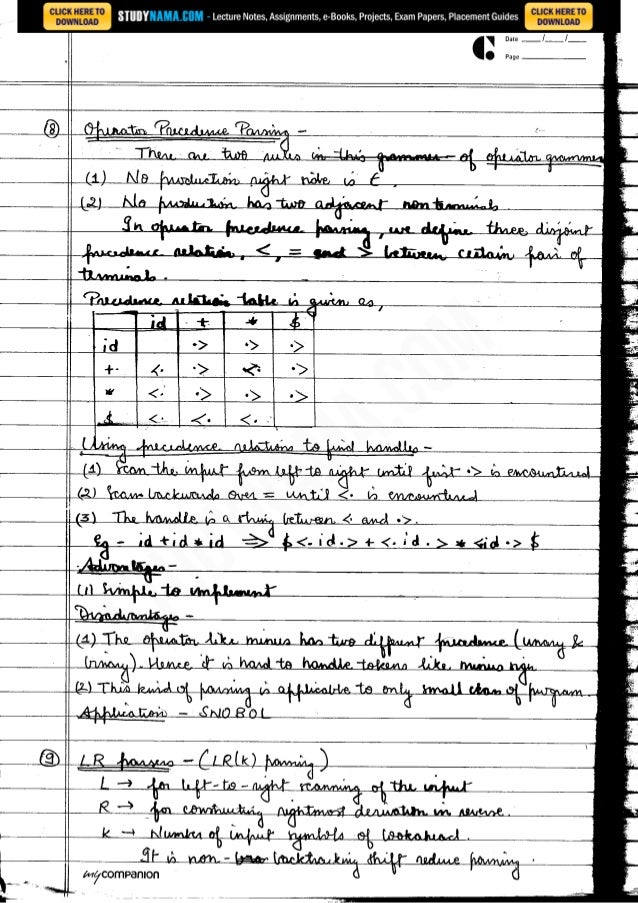 CLICK HERE TO DOWNLOAD STUDYNAMA.COM - Lecture Notes, Assignments, e-Books, Projects, Exam Papers, Placement Guides CLICK HERE TO DOWNLOAD
Date ___/___/___
Page
(8) Operator Precedence Parsing -
There are two rules in this grammer of operator grammer
(1) No production right side is ε.
(2) No production has two adjacent non terminals
In operator precedence parsing, we define three disjoint
precedence relation, <, = and > between certain pair of
terminals.
Precedence relation table is given as,
id + * $
id ·> ·> ·>
+ <· ·> <· ·>
* <· ·> ·> ·>
$ <· <· <·
Using precedence relations to find handles -
(1) Scan the input from left to right until first ·> is encountered
(2) Scan backwards over = until <· is encountered
(3) The handle is a string between <· and ·>.
Eg - id + id * id ⇒ $ <· id ·> + <· id ·> * <id ·> $
Advantages -
(1) Simple to implement
Disadvantages -
(1) The operator like minus has two different precedence (unary &
binary). Hence it is hard to handle tokens like minus sign
(2) This kind of parsing is applicable to only small class of program.
Application - SNOBOL
(9) LR parsers - (LR(k) parsing)
L → for left-to-right scanning of the input
R → for constructing rightmost derivation in reverse.
k → Number of input symbols of lookahead.
It is non- backtracking shift reduce parsing.
mycompanion